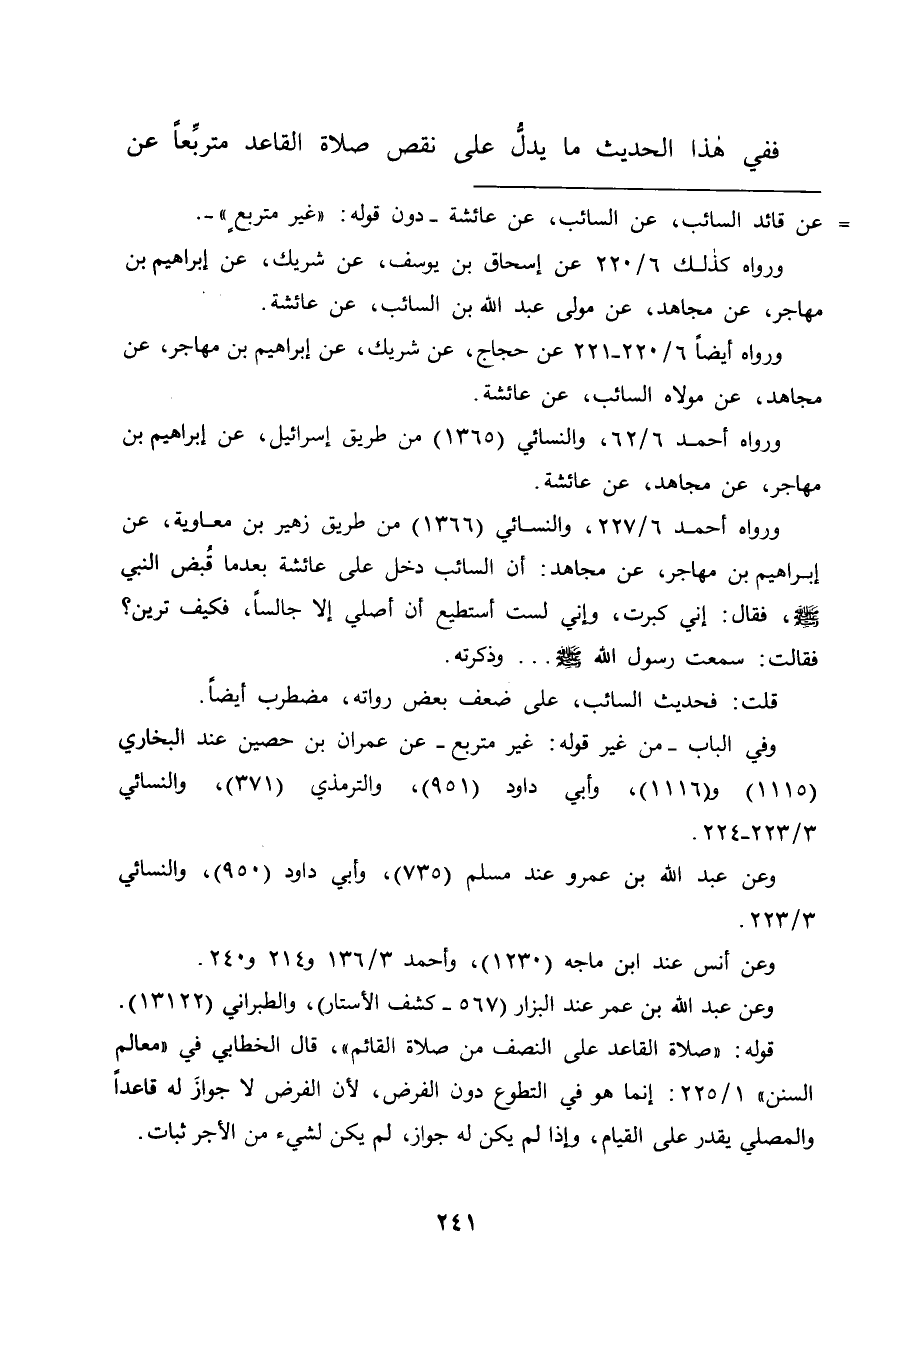 ففي هٰذا الحديث ما يدلُّ على نقص صلاة القاعد متربِّعاً عن
= عن قائد السائب، عن السائب، عن عائشة ـ دون قوله: «غير متربعٍ» ـ.
ورواه كذٰلك ٢٢٠/٦ عن إسحاق بن يوسف، عن شريك، عن إبراهيم بن
مهاجر، عن مجاهد، عن مولى عبد الله بن السائب، عن عائشة.
ورواه أيضاً ٢٢٠/٦-٢٢١ عن حجاج، عن شريك، عن إبراهيم بن مهاجر، عن
مجاهد، عن مولاه السائب، عن عائشة.
ورواه أحمد ٦٢/٦، والنسائي (١٣٦٥) من طريق إسرائيل، عن إبراهيم بن
مهاجر، عن مجاهد، عن عائشة.
ورواه أحمد ٢٢٧/٦، والنسائي (١٣٦٦) من طريق زهير بن معاوية، عن
إبراهيم بن مهاجر، عن مجاهد: أن السائب دخل على عائشة بعدما قُبض النبي
ﷺ، فقال: إني كبرت، وإني لست أستطيع أن أصلي إلا جالساً، فكيف ترين؟
فقالت: سمعت رسول الله ﷺ... وذكرته.
قلت: فحديث السائب، على ضعف بعض رواته، مضطرب أيضاً.
وفي الباب ـ من غير قوله: غير متربع ـ عن عمران بن حصين عند البخاري
(١١١٥) و(١١١٦)، وأبي داود (٩٥١)، والترمذي (٣٧١)، والنسائي
٢٢٣/٣-٢٢٤.
وعن عبد الله بن عمرو عند مسلم (٧٣٥)، وأبي داود (٩٥٠)، والنسائي
٢٢٣/٣.
وعن أنس عند ابن ماجه (١٢٣٠)، وأحمد ١٣٦/٣ و٢١٤ و٢٤٠.
وعن عبد الله بن عمر عند البزار (٥٦٧ ـ كشف الأستار)، والطبراني (١٣١٢٢).
قوله: «صلاة القاعد على النصف من صلاة القائم»، قال الخطابي في «معالم
السنن» ٢٢٥/١: إنما هو في التطوع دون الفرض، لأن الفرض لا جوازَ له قاعداً
والمصلي يقدر على القيام، وإذا لم يكن له جواز، لم يكن لشيء من الأجر ثبات.
٢٤١